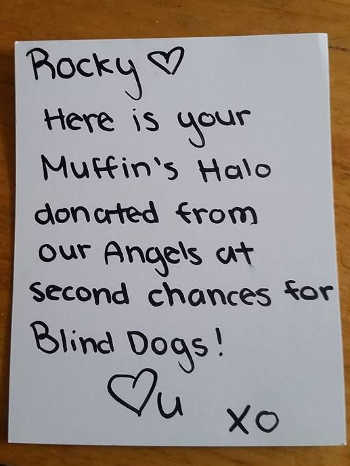 Rocky ♡
Here is your
Muffin's Halo
donated from
our Angels at
second chances for
Blind Dogs!
♡u
xo